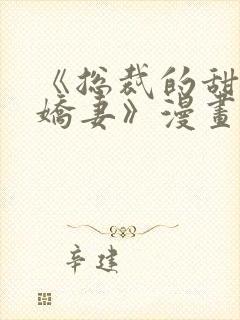 《总裁的甜
嬌妻》漫畫
辛建